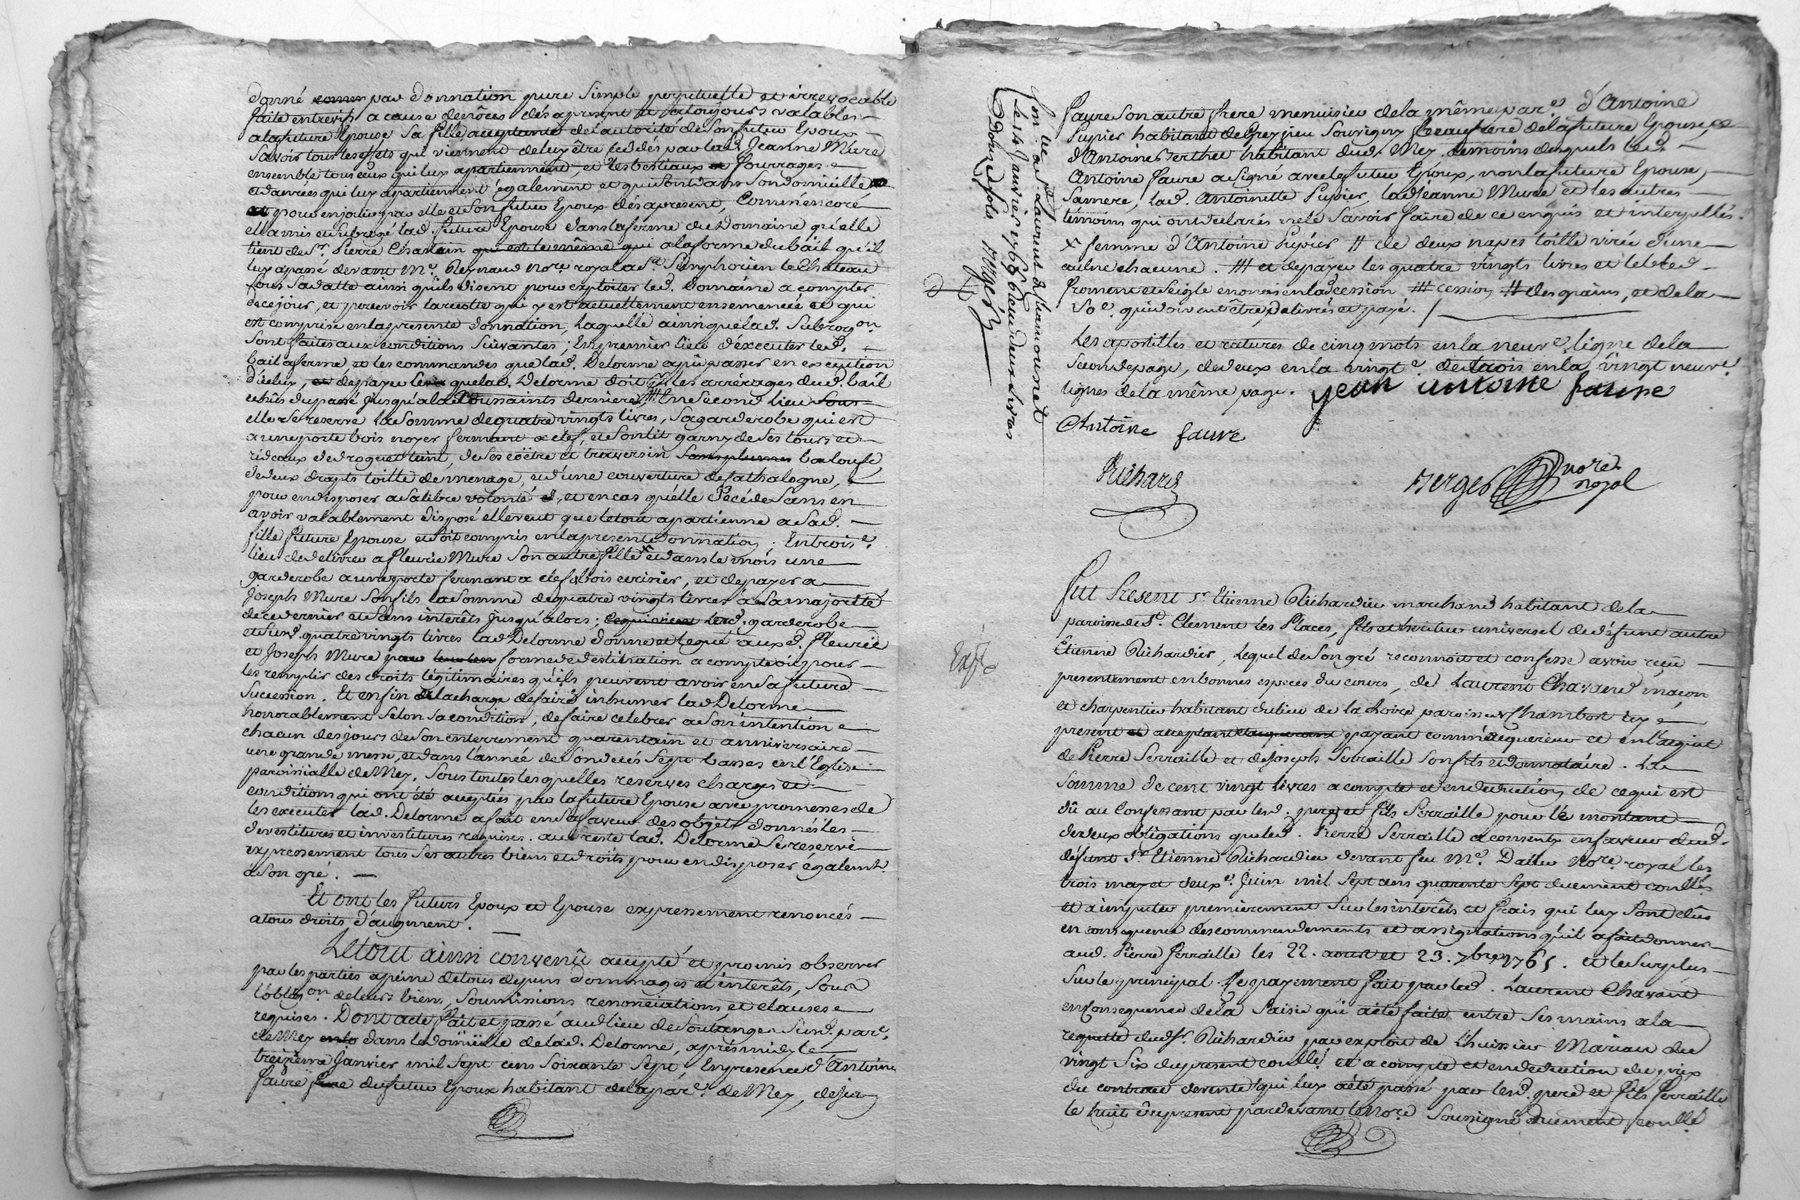 donné par donnation pure simple perpetuelle et irrevocable
faite entrevifs a cause de nôces dès apresent et atoujours valable
a la future Epouse sa fille acceptante de l'autorité de son futur Epoux
Savoir tous les effets qui viennent de luy être cedés par lad. Jeanne Mure
ensemble tous ceux qui luy apartiennent, et les bestiaux fourrages
et danrées qui luy apartiennent egalement et qui sont dans son domicille
pour en jouir par elle et son futur Epoux dès apresent, Comm'encore
ella mis et subrogé lad. future Epouse dans la ferme du Domaine qu'elle
tient de sr. Pierre Chatain qui est le même qui a la forme du bail qu'il
luy a passé devant Me. Reynaud nore. royal a st. Simphorien le Chateau
sous sa datte ainsi qu'ils disent pour exploiter led. Domaine a compter
de ce jour, et percevoir la recolte qui y est actuellement ensemencée et qui
est comprise en la presente donnation, laquelle ainsi que lad. Subrogon.
sont faites aux conditions suivantes; En premier lieu d'executer led.
bail a ferme et les commandes que lad. Delorme a pû passer en execution
d'icelux, et de payer que lad. Delorme doit les arrérages dud. bail
echûs du passé jusqu'a la Toussaints derniere, En second lieu
elle se reserve la somme de quatre vingts livres, sa garderobe qui est
a une porte bois noyer fermant a clef, et son lit garny de ses tours et
rideaux de droguet teint, de ses coëtre et traversin baloufe,
de deux draps toille de menage, et d'une couverture de Cathalogne,
pour en disposer a sa libre volonté, et en cas qu'elle décéde sans en
avoir valablement disposé elle veut que le tout apartienne a sad.
fille future Epouse et soit compris en la presente donnation. En trois e.
lieu de delivrer a fleurie Mure son autre fille et dans le mois une
garderobe a une porte fermant a clef bois cerisier, et de payer a
Joseph Mure son fils la somme de quatre vingts livres a sa majorité
de ce dernier et sans interêts jusqu'alors; garderobe
et surd. quatre vingts livres lad. Delorme donne et legue auxd. fleurie
et Joseph Mure forme de destination a compte ou pour
les remplir des droits legitimaires qu'ils peuvent avoir en sa future
succession. Et enfin a la charge de faire inhumer lad Delorme
honorablement selon sa condition, de faire celebrer a son intention
chacun des jours de son enterrement quarentain et anniversaire
une grande messe, et dans l'année de son decès sept basses en l'Eglise
parroissialle de Mey. Sous toutes lesquelles reserves charges et
conditions qui ont été acceptées par la future Epouse avec promesses de
les executer lad. Delorme a fait en sa faveur des objets donnés les
devestitures et investitures requises. au reste lad. Delorme se reserve
expressement tous ses autres biens et droits pour en disposer égalemt.
a son gré.
Et ont les futurs Epoux et Epouse expressement renoncés
a tous droits d'augment.
Le tout ainsi convenû accepté et promis observer
par les parties a peine de tous depens dommages et interêts, sous
l'oblig on. de leurs biens, soumissions renonciations et clauses
requises. Dont acte fait et passé aud lieu de Soulange surd. parr.
de Mey dans le domicille de lad. Delorme, après midy le
treizième Janvier mil sept cens soixante sept. En presence d'Antoine
faure du futur Epoux habitant de la parr. de Mey, de Jean
faure son autre frere menuisier de la même par e. d'Antoine
Pupier habitant de Grezieu Souvigny beaufrere de la future Epouse,
d'Antoine Berthet habitant dud. Mey, temoins desquels led.
Antoine faure a signé avec le futur Epoux, non la future Epouse,
sa mere, lad. Antoinette Pupier, lad Jeanne Mure et les autres
temoins qui ont declarés ne le savoir faire de ce enquis et interpellés.
X femme d'Antoine Pupier # de deux napes toille virée d'une
aulne chacune. ## et de payer les quatre vingts livres et led
froment et seigle enoncés en lad cession. ### cession, # des grains, et de la
qui doivent être delivrés et payé.
Les apostilles et ratures de cinq mots en la neuve. ligne de la
seconde page, de deux en la vingt e. de trois en la vingt neuve.
lignes de la même page.
jean antoine faure
Antoine faure
Richard
Berger nore. royal
Con. lle. a St. Laurent de Chamousset
le 14 Janvier 1767
Berger
Exp.
Fut Present sr. Etienne Richardier marchand habitant de la
paroisse de st. Clement les Places, fils et heritier universel de defunt autre
Etienne Richardier, Lequel de son gré reconnoit et confesse avoir reçû
presentement en bonnes especes du cours, de Laurent Chavand maçon
et charpentier habitant du lieu de la Loire paroisse de Chambost icy
present acceptant payant comme acquereur et en l'acquit
de Pierre Ferraille et de Joseph Ferraille son fils et donnataire. La
somme de cent vingt livres a compte et en deduction de ce qui est
dû au Confessant par lesd. pere et fils Ferraille pour le montant
de deux obligations que led. Pierre Ferraille a consenti en faveur dud.
defunt sr. Etienne Richardier devant feu Me. Dalin Nore. royal les
trois may et deux e. Juin mil sept cens quarente sept duement conllés
et a imputer premierement sur les interêts et frais qui luy sont dûs
en consequence des commandements et assignations qu'il a fait donner
aud. Pierre Ferraille les 22. aoust et 23. 7bre 1765. et le surplus
sur le principal. Ce payement fait par led. Laurent Chavant
en consequence de la saisie qui a été faite entre ses mains a la
requette dud sr. Richardier par exploit de l'huissier Marian du
vingt six du present conllé. et a compte et en deduction du prix
du contract de vente qui luy a été passé par lesd. pere et fils Ferraille
le huit du present pardevant le nore. soussigné duement conllé